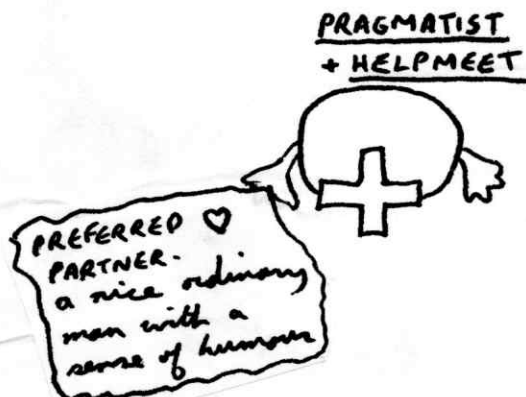 PRAGMATIST
+ HELPMEET
PREFERRED ♡
PARTNER.
a nice ordinary
man with a
sense of humour